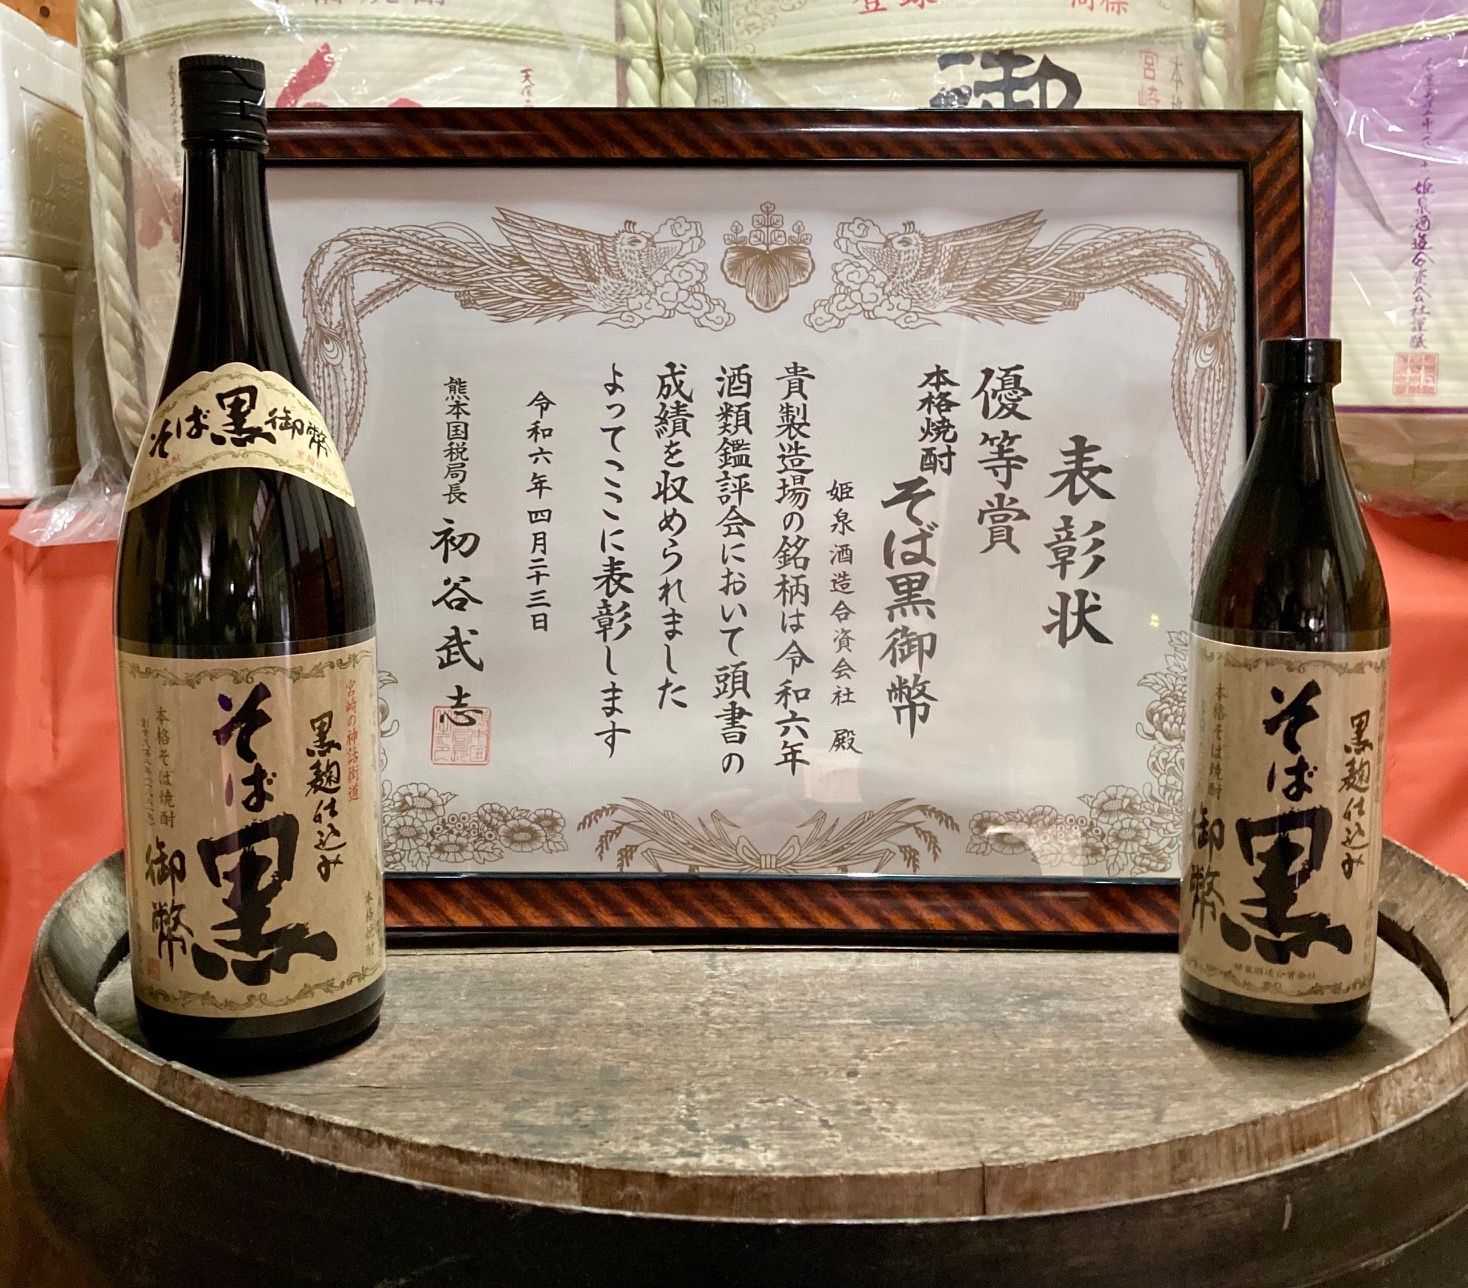 表彰状
優等賞
本格焼酎 そば黒御幣
姫泉酒造合資会社 殿
貴製造場の銘柄は令和六年
酒類鑑評会において頭書の
成績を収められました
よってここに表彰します
令和六年四月二十三日
熊本国税局長 初谷武志
そば黒御幣
宮崎の神話街道
黒麹仕込み
そば黒
御幣
本格そば焼酎
本格焼酎
黒麹仕込み
そば黒
御幣
本格そば焼酎
姫泉酒造合資会社
登録
商標
御
宮崎
本格
姫泉酒造合資会社謹醸